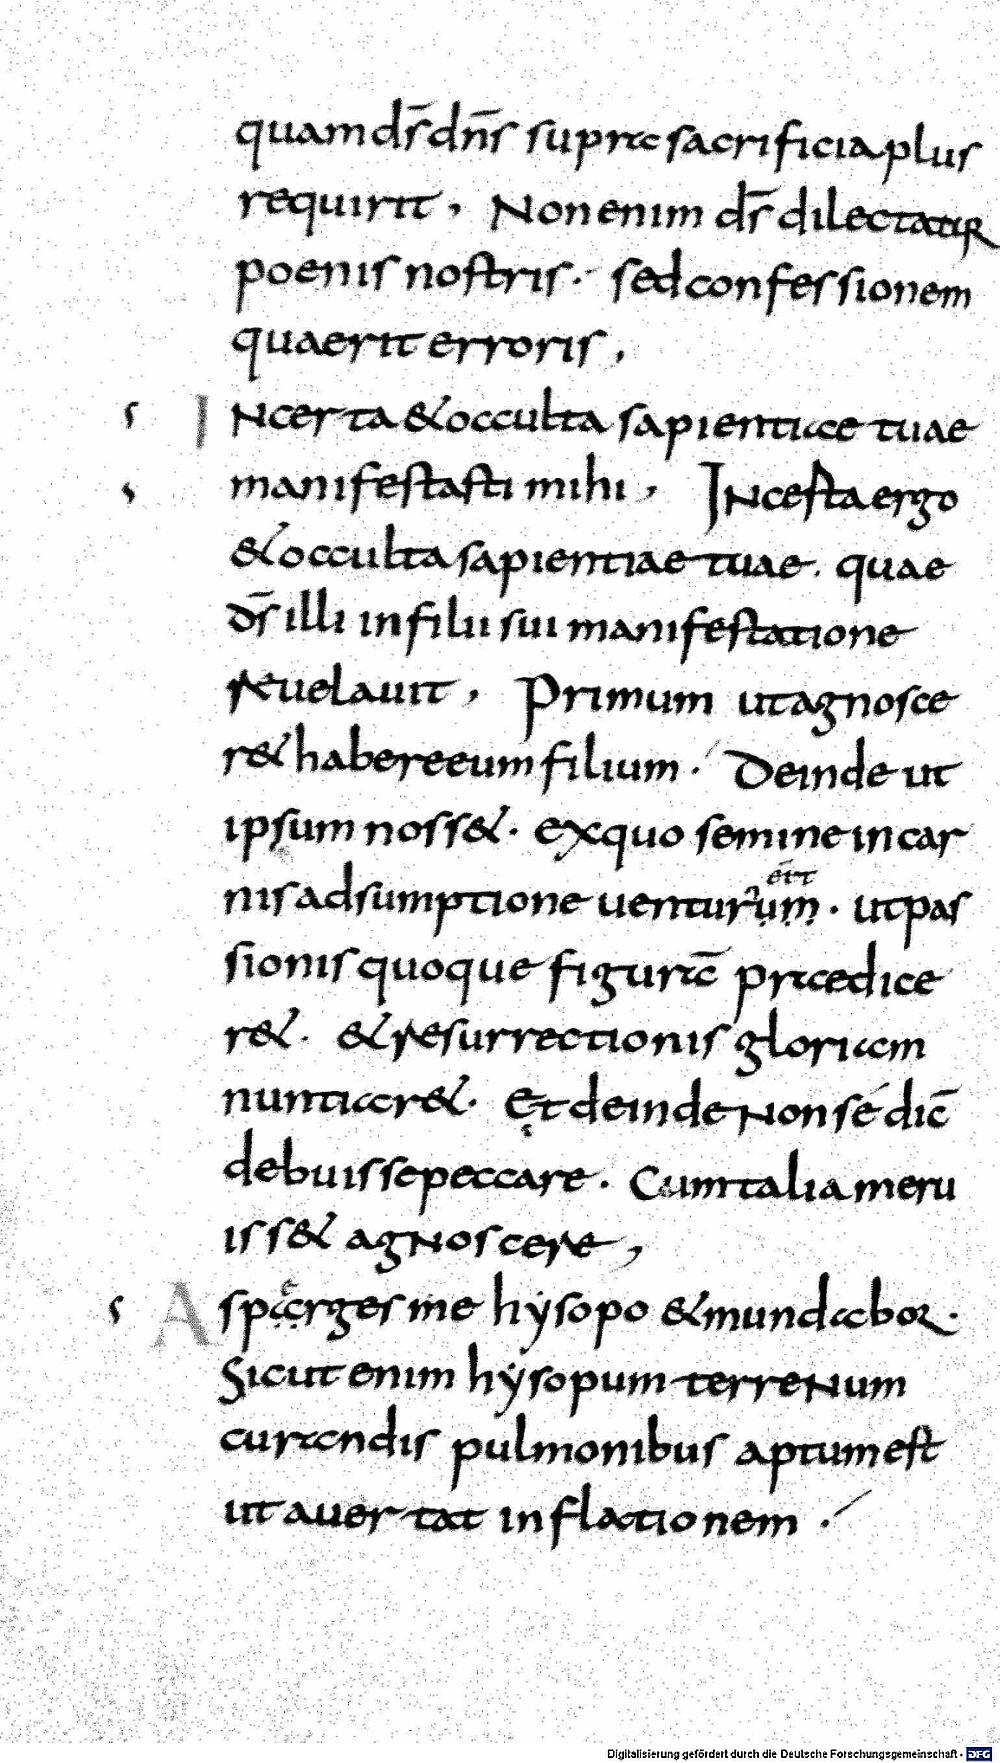 quam dr̄ dn̄s supra sacrificia plus
requirit, Non enim dr̄ dilectatur
poenis nostris. sed confessionem
quaerit erroris,
s INcerta & occulta sapientiae tuae
s manifestasti mihi, INcesta ergo
& occulta sapientiae tuae. quae
dr̄ illi in filii sui manifestatione
reuelauit, Primum ut agnosce
r& habere eum filium. Deinde ut
ipsum noss&. ex quo semine in car
nis adsumptione uenturum ēīt. ut pas
sionis quoque figurā praedice
r&. & resurrectionis gloriam
nuntiar&. Et deinde Non sé dic̄
debuisse peccare. Cum talia meru
iss& agNoscere,
s Asperges me hẏsopo & mundabor.
Sicut enim hẏsopum terreNum
curandis pulmonibus aptum est
ut auertat inflationem.
Digitalisierung gefördert durch die Deutsche Forschungsgemeinschaft - DFG